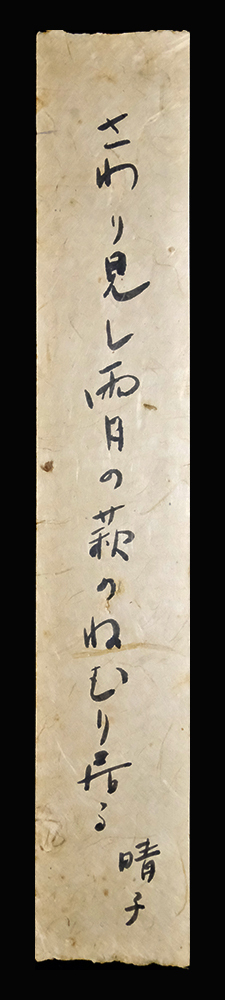 さわり見し雨月の萩のねむり居る
晴子